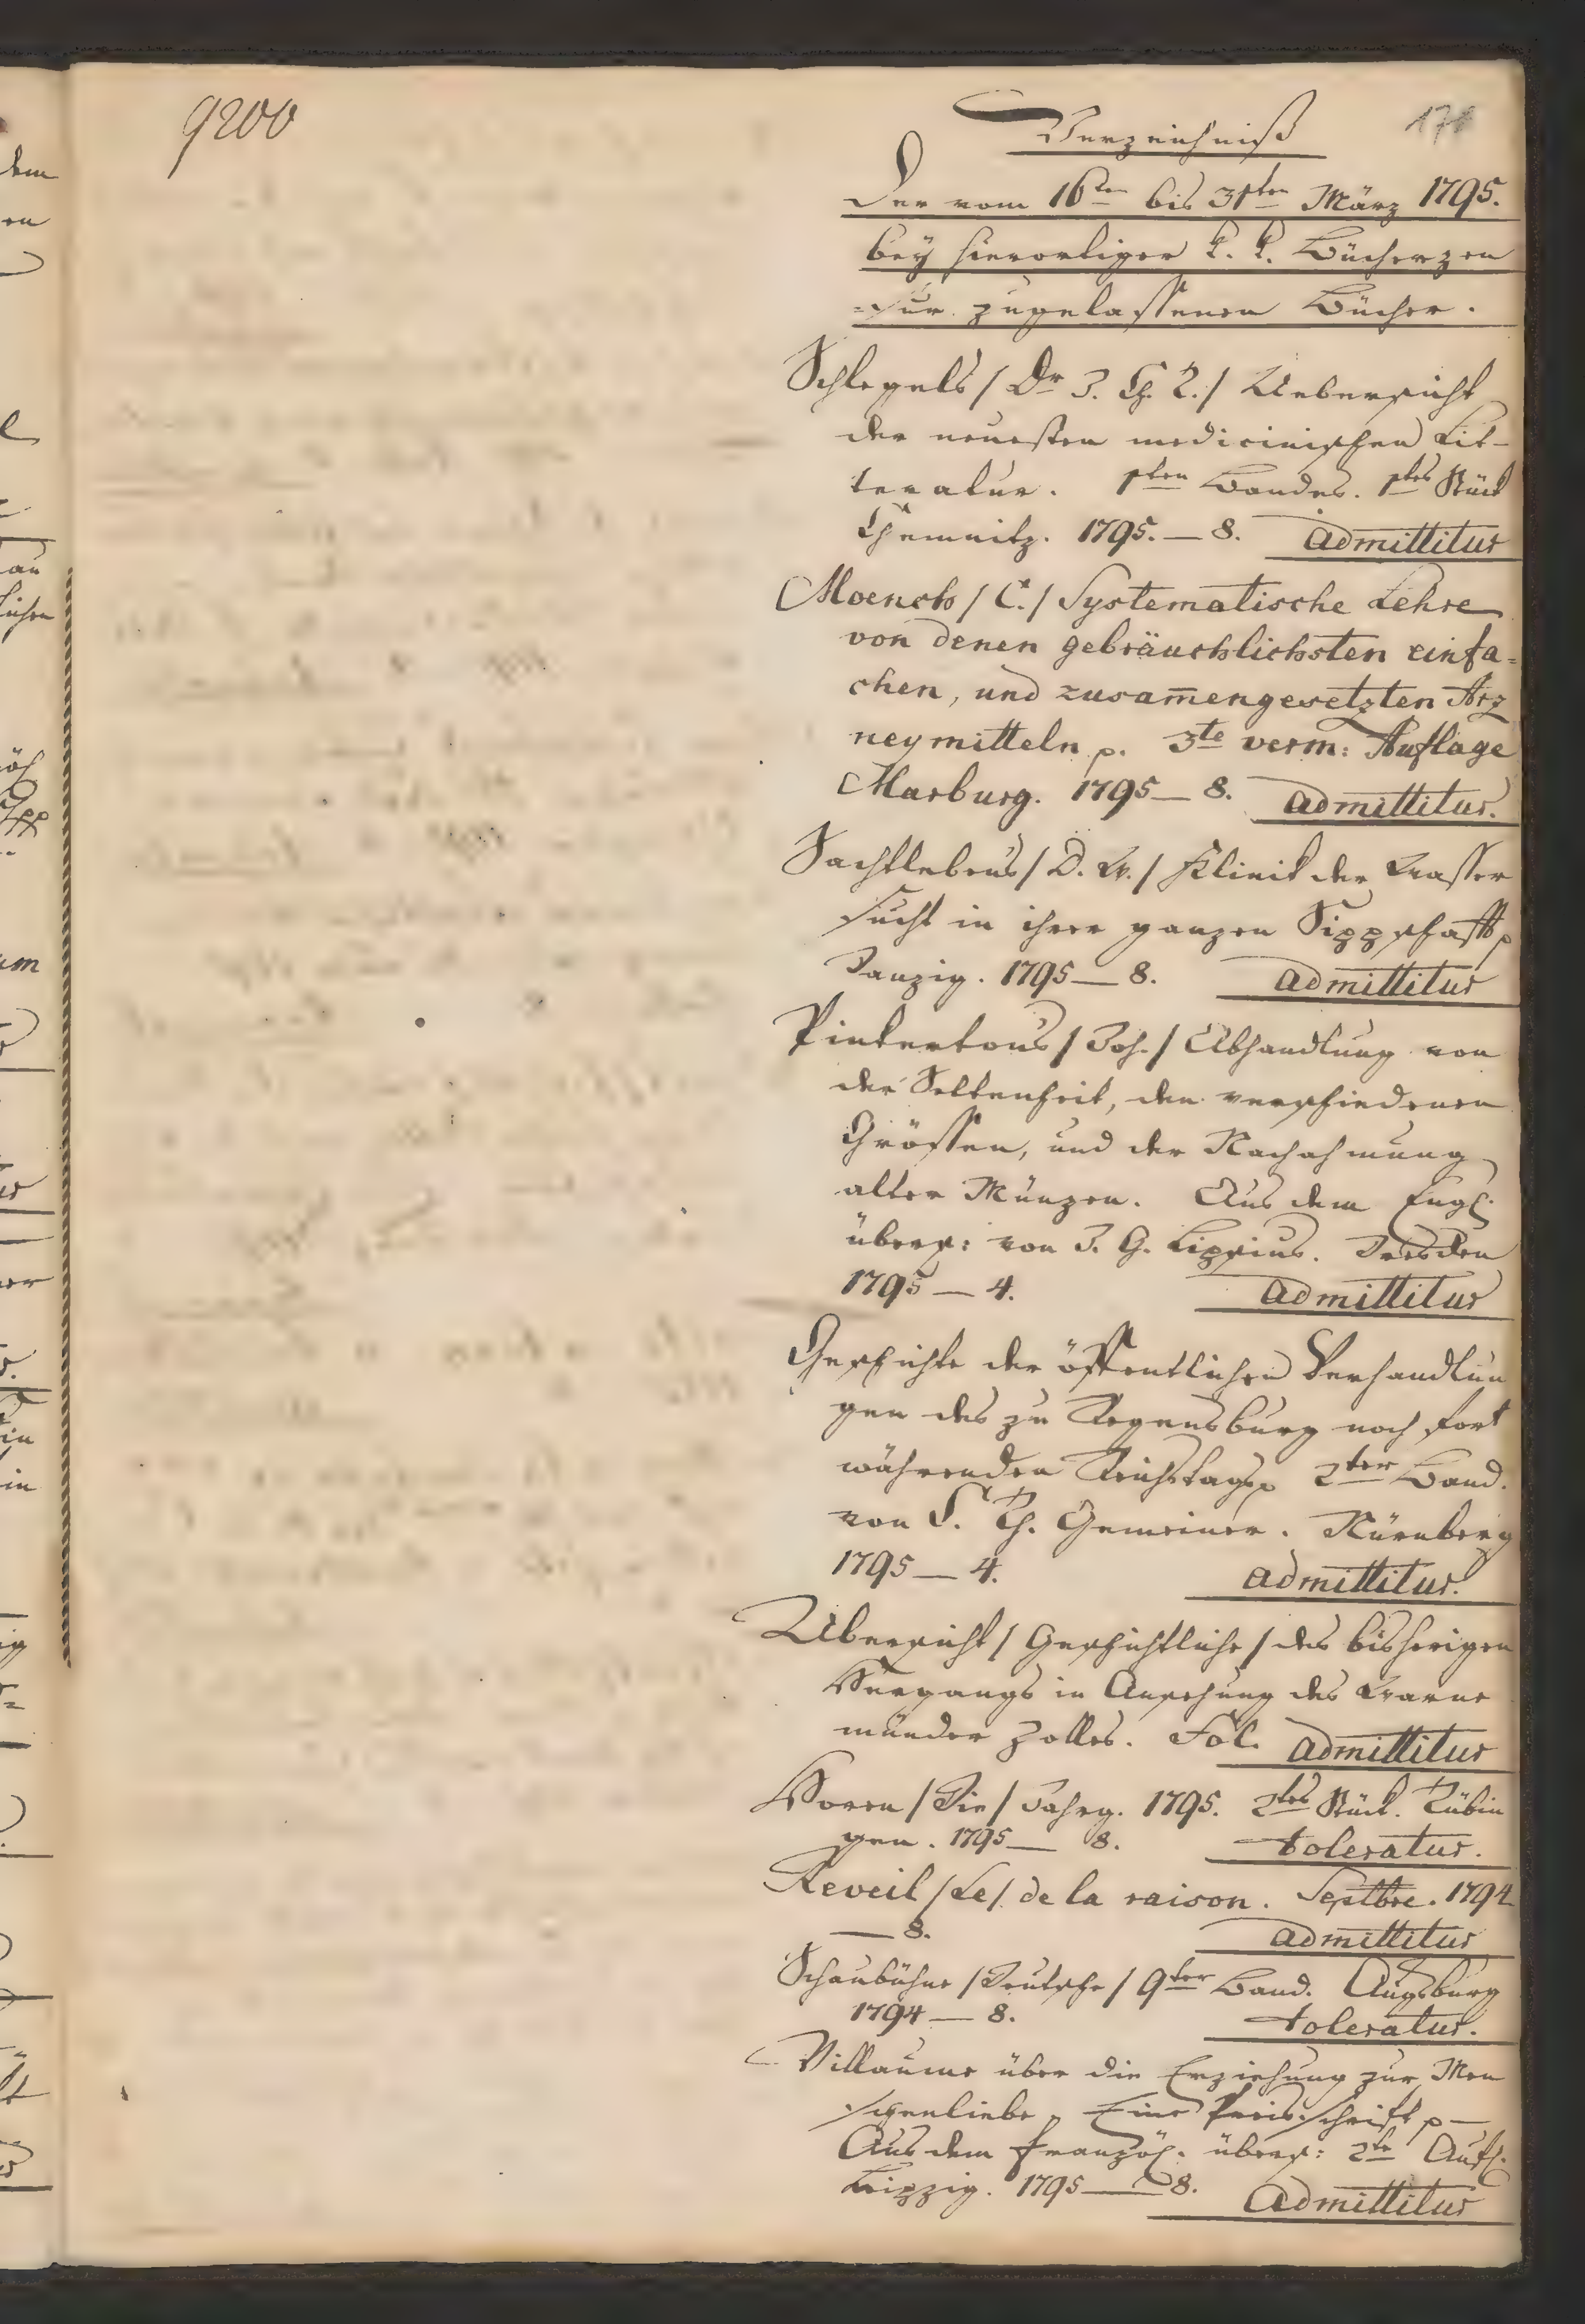 9200
171
Verzeichniß
der vom 16ten bis 31ten März 1795.
bey hierortiger k. k. Bücherzen
=sur zugelassenen Bücher.
Schlegels / Dr J. Ch. T. / Uebersicht
der neuesten medicinischen Lit-
teratur. 1ten Bandes. 1tes Stück
Chemnitz. 1795. — 8. admittitur
Moench / C. / Systematische Lehre
von denen gebräuchlichsten einfa=
chen, und zusam̅engesetzten Arz
neymitteln p. 3te verm: Auflage
Marburg. 1795 — 8. admittitur.
Sachtlebens / D. W. / Klinik der Wasser
sucht in ihrer ganzen Sippschaft p
Danzig. 1795 — 8. admittitur
Pinkertons / Joh. / Abhandlung von
der Seltenheit, den verschiedenen
Grössen, und der Nachahmung
alter Münzen. Aus dem Engl.
übers: von J. G. Lipsius. Dresden
1795 — 4. admittitur
Geschichte der öffentlichen Verhandlun
gen des zu Regensburg noch fort
währenden Reichstags p 2ter Band.
von C. Th. Gemeiner. Nürnberg
1795 — 4. admittitur.
Übersicht / Geschichtliche / des bisherigen
Hergangs in Ansehung des Warne
münder Zolles. Fol. admittitur
Horen / Die / Jahrg. 1795. 2tes Stück. Tübin
gen. 1795 — 8. toleratur.
Reveil / Le / de la raison. Septbre. 1794
— 8. admittitur
Schaubühne / Deutsche / 9ter Band. Augsburg
1794 — 8. toleratur.
Villaume über die Erziehung zur Men
schenliebe, Eine Preisschrift p —
Aus dem französ. übers: 2te Aufl.
Leipzig. 1795 — 8. Admittitur